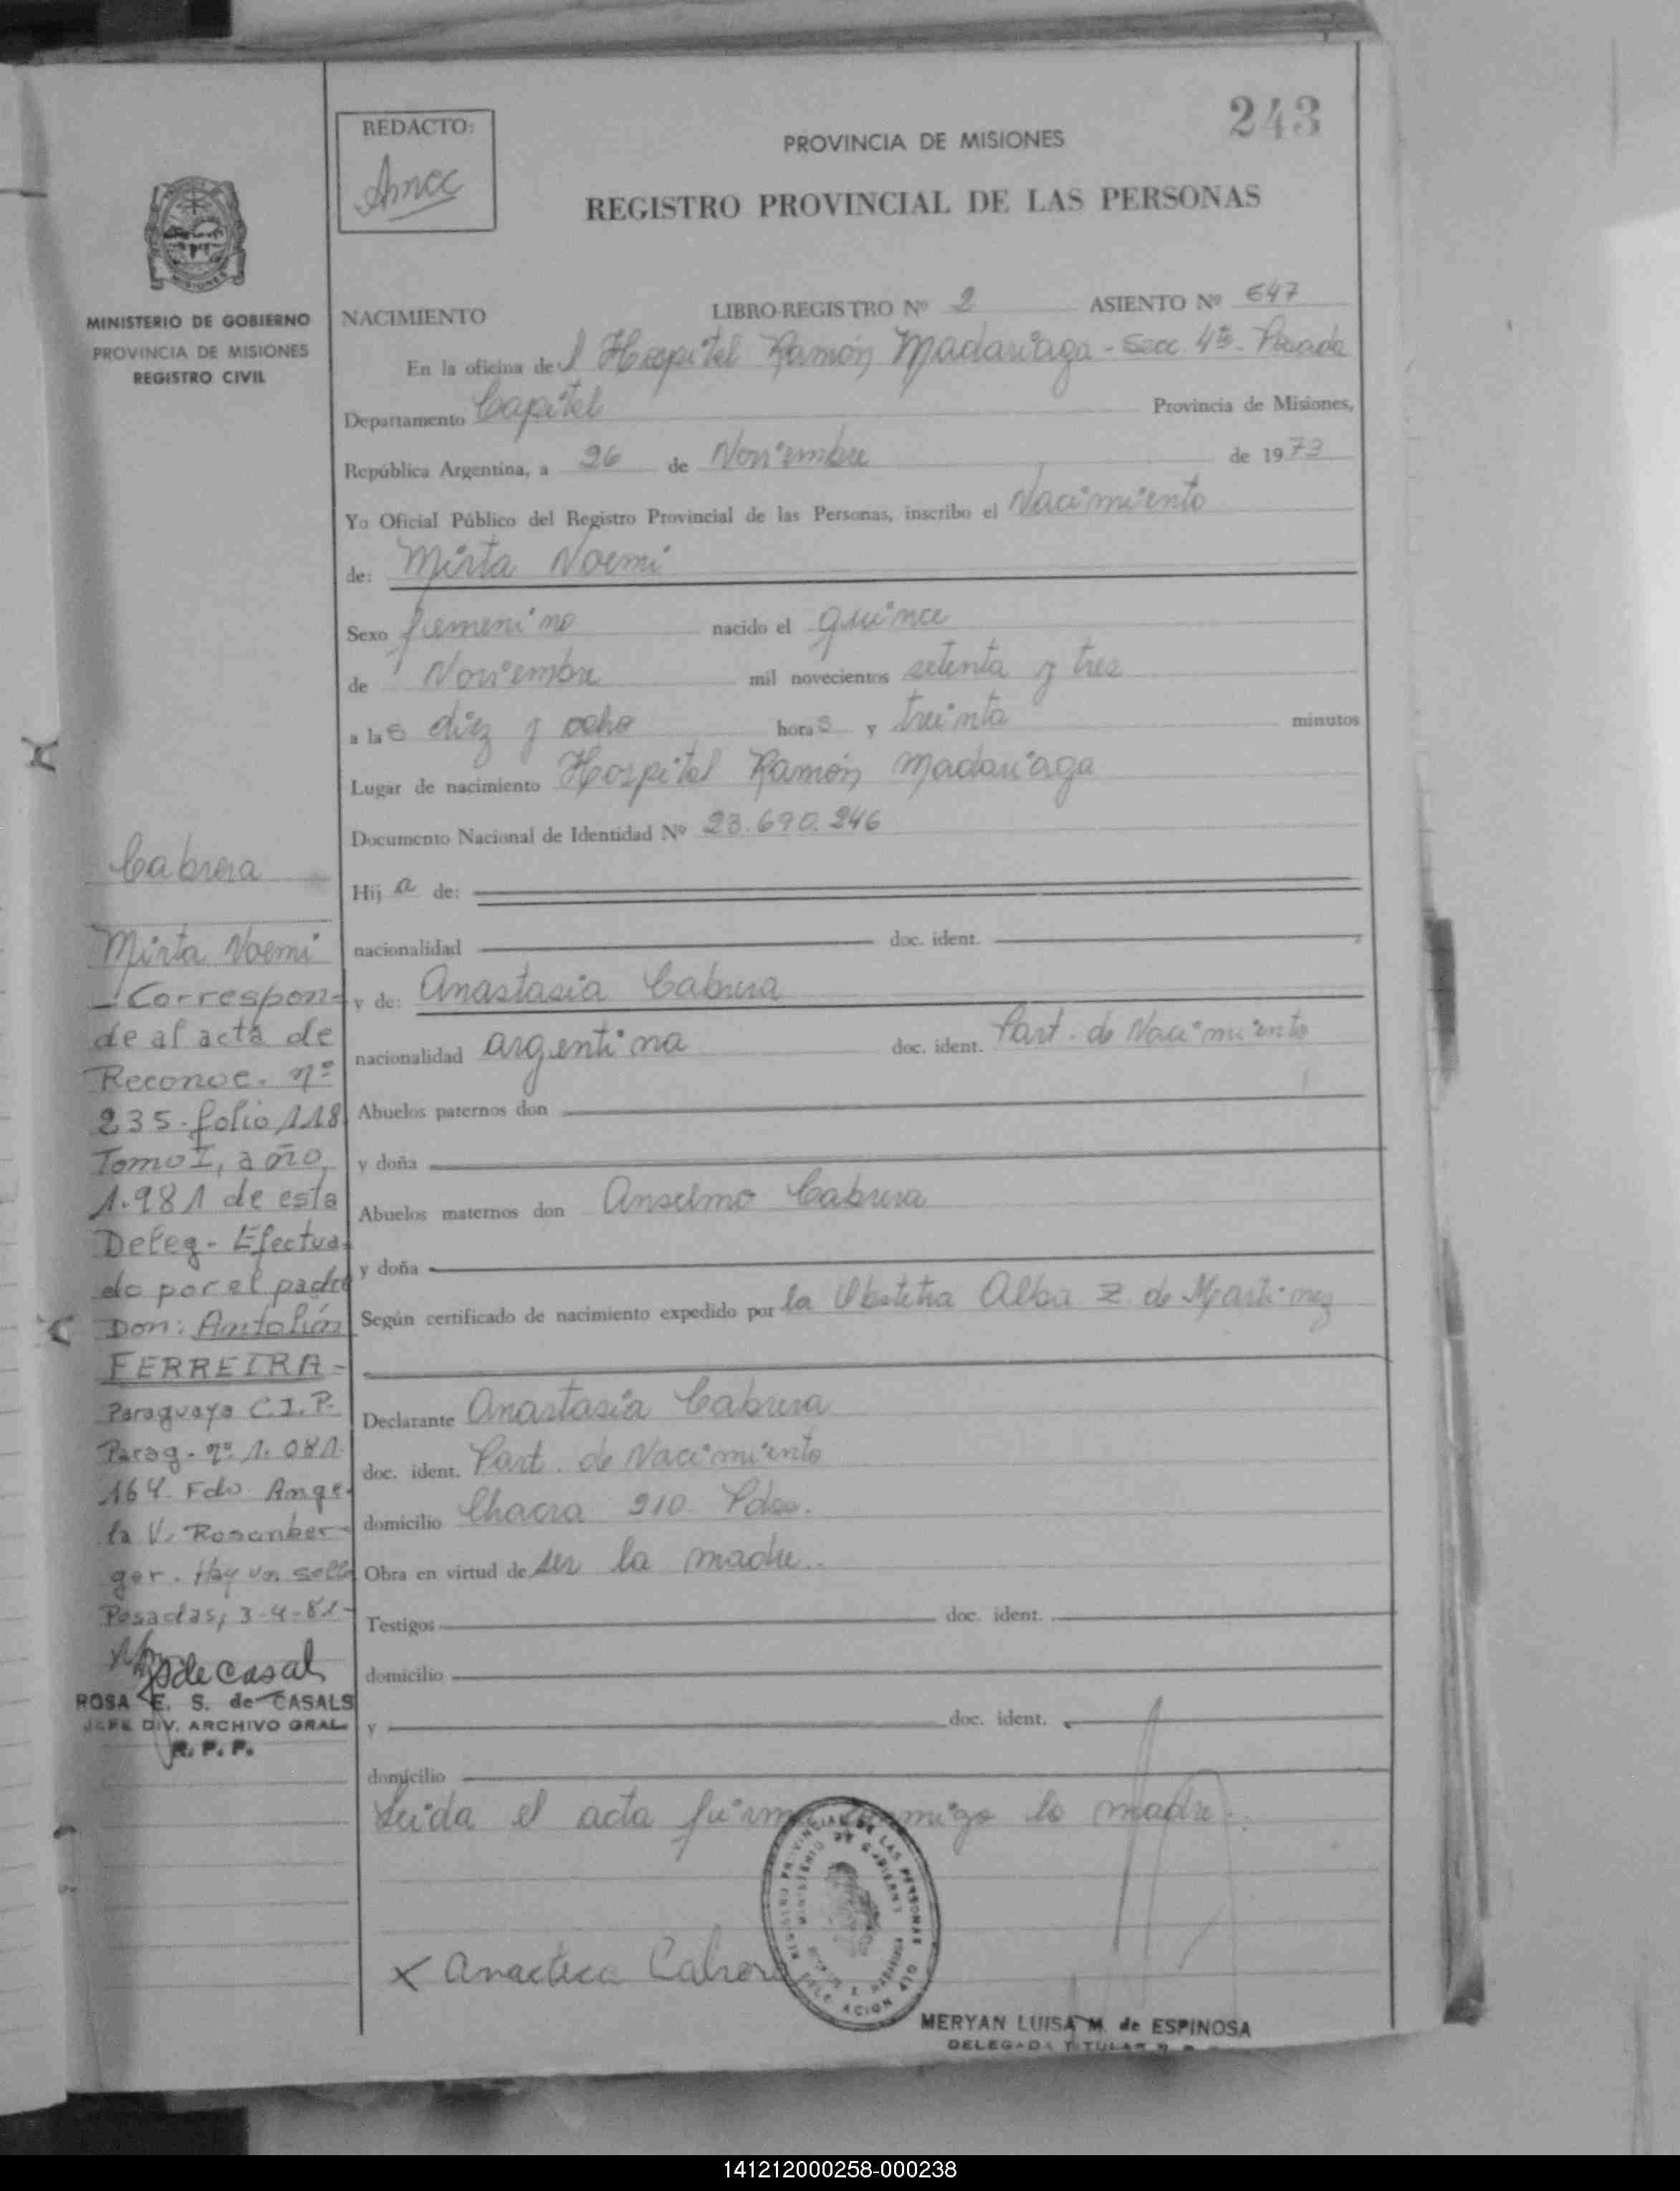 243
REDACTO:
PROVINCIA DE MISIONES
REGISTRO PROVINCIAL DE LAS PERSONAS
MISIONES
MINISTERIO DE GOBIERNO
PROVINCIA DE MISIONES
REGISTRO CIVIL
NACIMIENTO LIBRO-REGISTRO Nº 2 ASIENTO Nº 647
En la oficina del Hospital Ramón Madariaga - Secc. 4ta -
Departamento Capital Provincia de Misiones,
República Argentina, a 26 de Noviembre de 1973
Yo Oficial Público del Registro Provincial de las Personas, inscribo el Nacimiento
de: Mirta Noemi
Sexo femenino nacido el quince
de Noviembre mil novecientos setenta y tres
a las diez y ocho horas y treinta minutos
Lugar de nacimiento Hospital Ramón Madariaga
Documento Nacional de Identidad Nº 23.690.246
Hija de:
nacionalidad doc. ident.
y de: Anastasia Cabrera
nacionalidad argentina doc. ident. Part. de Nacimiento
Abuelos paternos don
y doña
Abuelos maternos don Anselmo Cabrera
y doña
Según certificado de nacimiento expedido por la Obstetra Alba Z. de Martinez
Declarante Anastasia Cabrera
doc. ident. Part. de Nacimiento
domicilio Chacra 210. Pdas.
Obra en virtud de ser la madre..
Testigos doc. ident.
domicilio
y doc. ident.
domicilio
Leida el acta firma conmigo la madre..
x Cabrera
REGISTRO PROVINCIAL DE LAS PERSONAS
MINISTERIO DE GOBIERNO
MERYAN LUISA M. de ESPINOSA
DELEGADA TITULAR
Cabrera
Mirta Noemi
- Correspon-
de al acta de
Reconoc. nº
235. folio 118
Tomo I, año
1.981 de esta
Deleg- Efectua-
do por el padre
Don: Antolín
FERREIRA-
Paraguayo C.I.P.
Parag. nº 1.081.
164. Fdo. Ange-
la V. Rosenber-
ger. Hay un sello
Posadas, 3-4-81-
de Casals
ROSA E. S. de CASALS
JEFE DIV. ARCHIVO GRAL.
R. P. P.
141212000258-000238